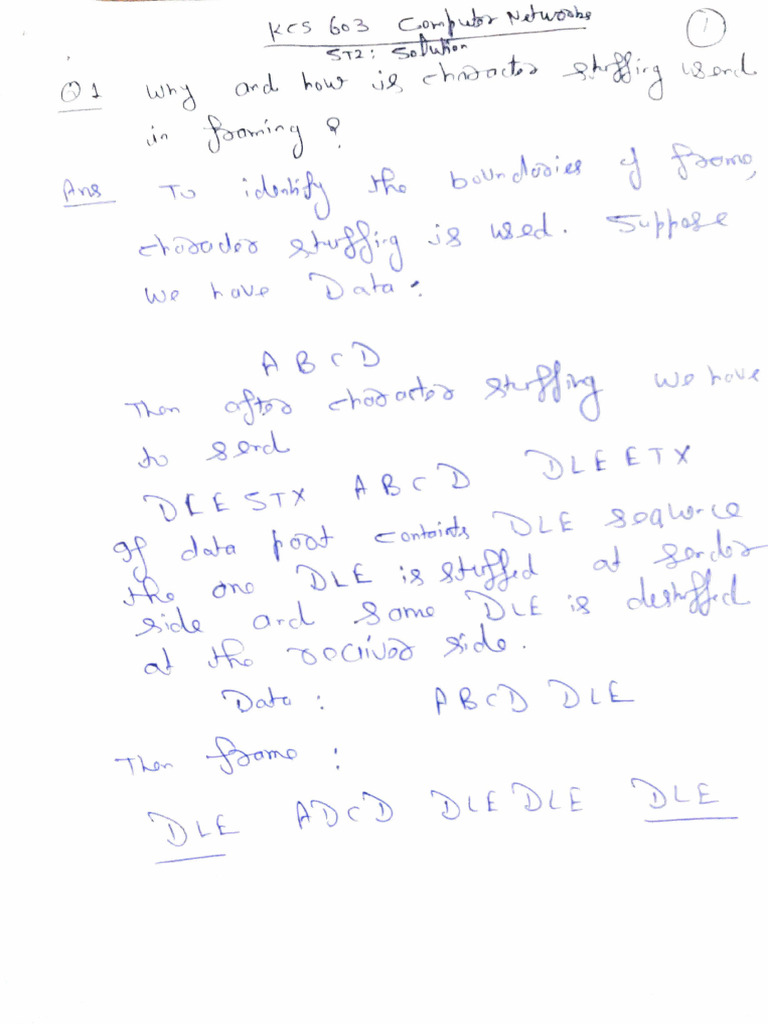 KCS 603 Computer Networks
1
ST2: Solution
Q1 Why and how is character stuffing used
in framing ?
Ans To identify the boundaries of frame,
character stuffing is used. Suppose
we have Data :
A B C D
Then after character stuffing we have
to send
DLE STX A B C D DLE ETX
If data part containts DLE sequence
the one DLE is stuffed at sender
side and same DLE is destuffed
at the reciver side.
Data : A B C D DLE
Then frame :
DLE A D C D DLE DLE DLE